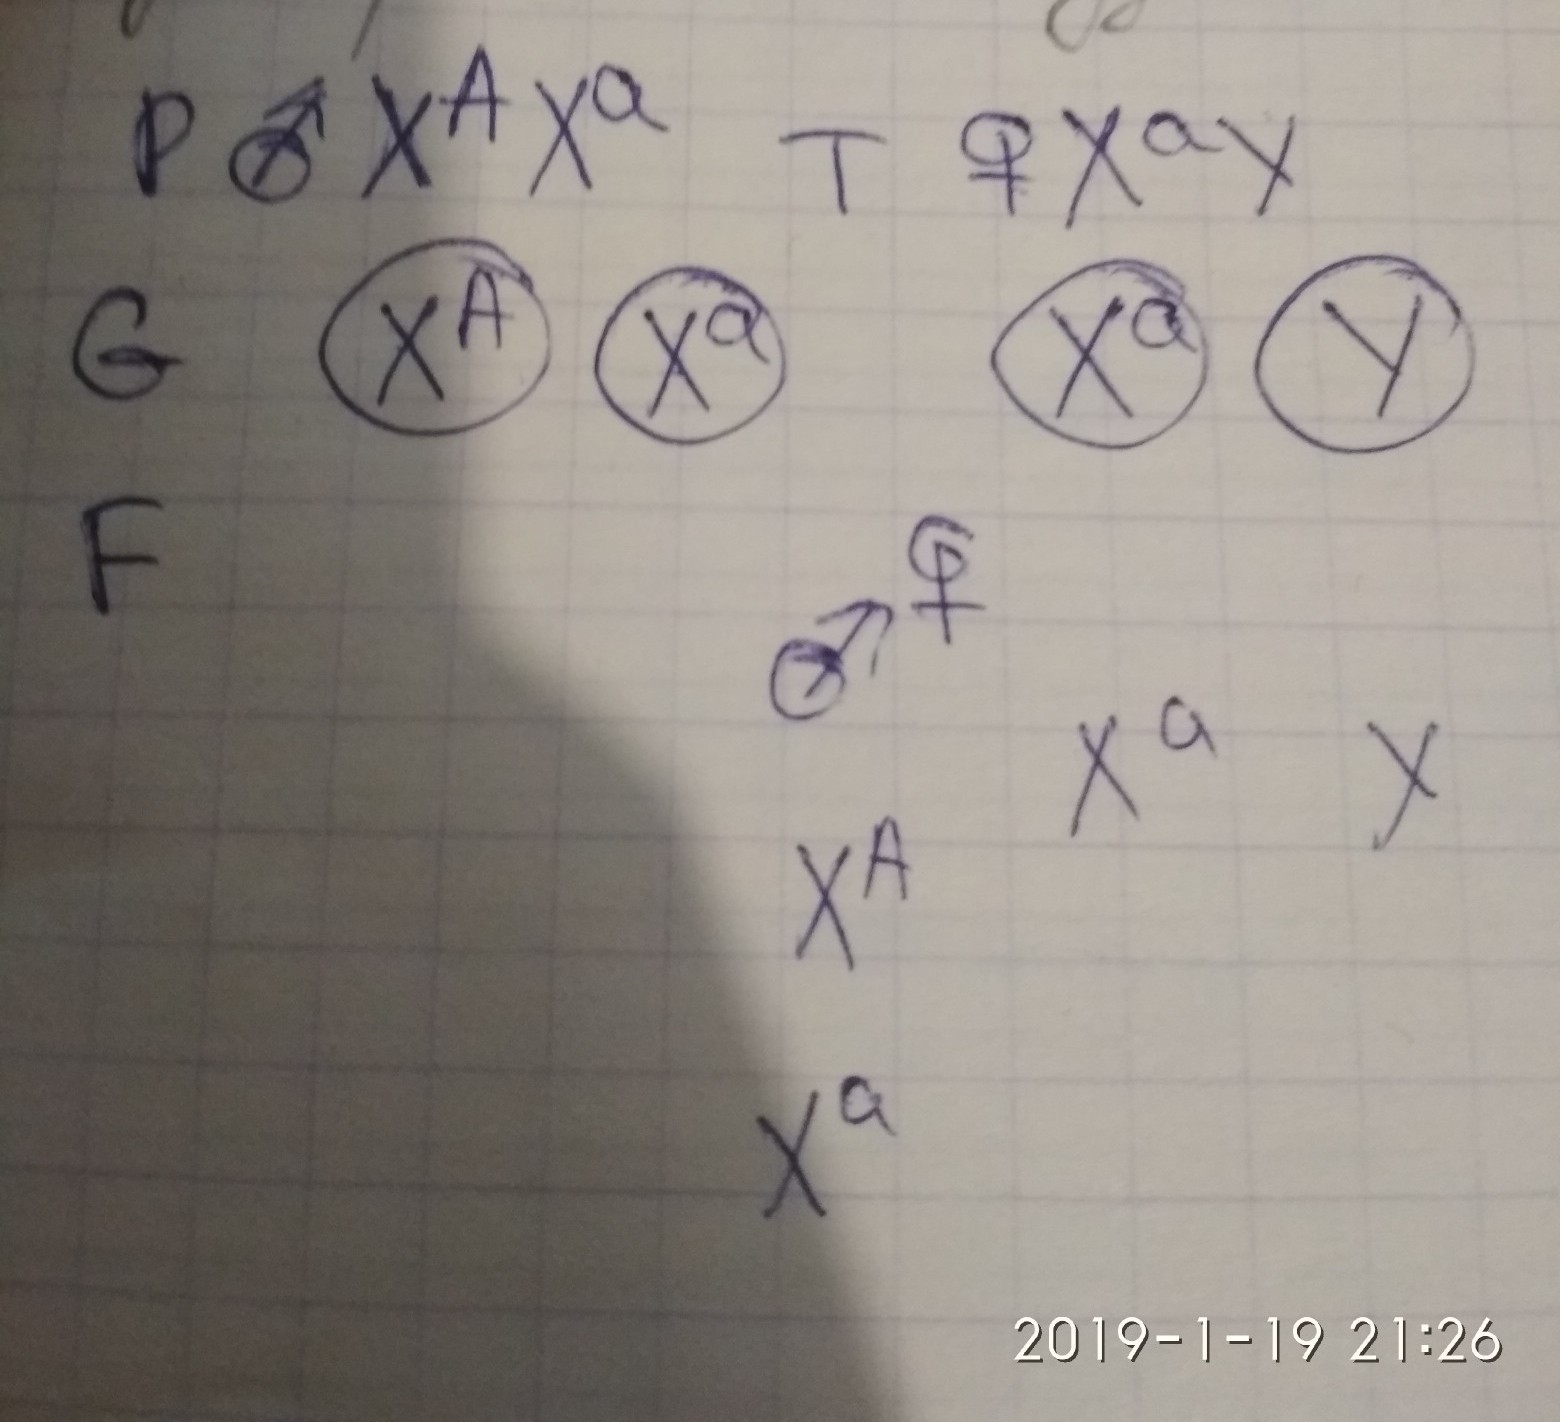 P ♂ X^A X^a T ♀ X^a Y
G X^A X^a X^a Y
F
♂ ♀
X^a Y
X^A
X^a
2019-1-19 21:26